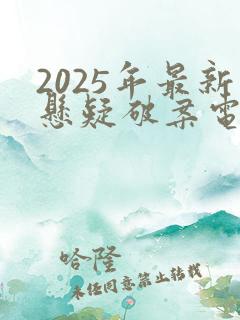 2025年最新
悬疑破案电
哈隆
未经同意禁止转载